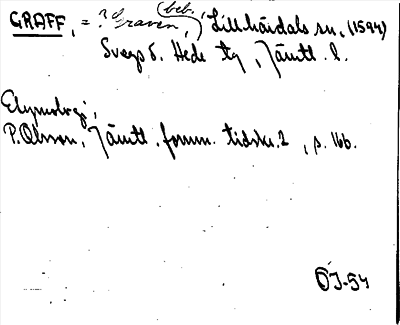 GRAFF, = ? Graven, (beb.) Lillhärdals sn, (1594)
Svegs o. Hede tg, Jämtl. l.
Etymologi:
P. Olsson, Jämtl. fornm. tidskr. 2, s. 166.
ÖJ-54